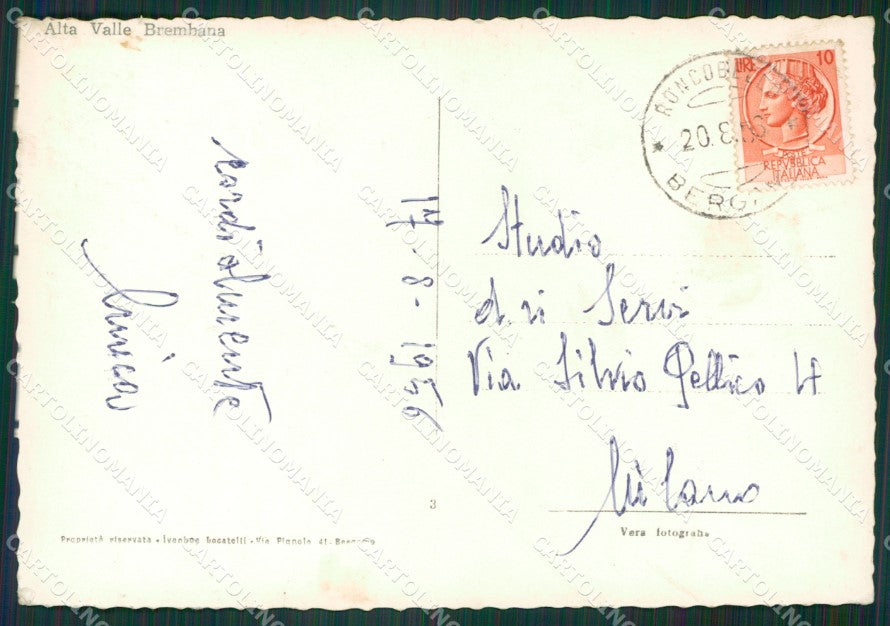 Alta Valle Brembana
LIRE 10
POSTE
REPVBBLICA
ITALIANA
20.8.
BERG
cordialmente
17-8-1956
Studio
Servi
Via Silvio Pellico 14
Milano
3
Vera fotografia
Proprietà riservata - Ivanhoe Locatelli - Via Pignolo 41 - Bergamo
CARTOLINOMANIA